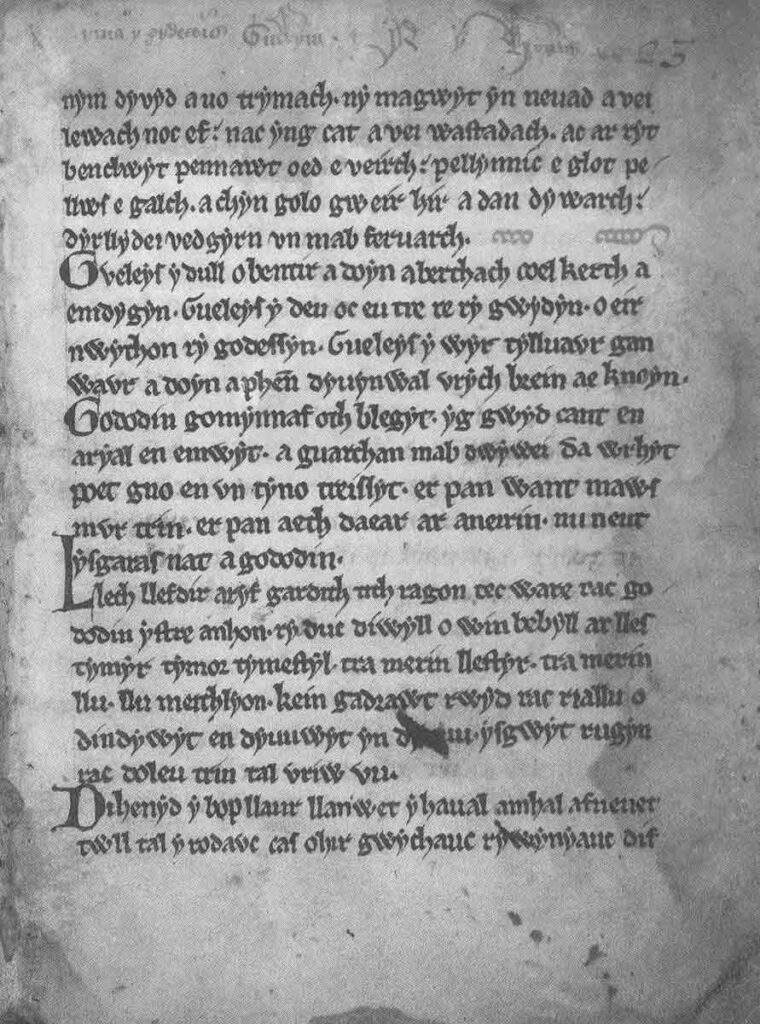 25
nym dyvyd a uo trymach. ny magwyt yn neuad a vei
lewach noc ef: nac yng cat a vei wastadach. ac ar ryt
benclwyt pennawt oed e veirch: pellynnic e glot pe
llws e galch. a chyn golo gweir hir a dan dywarch:
dyrllydei vedgyrn vn mab feruarch.
Gveleys y dull o bentir a doyn aberthach coel kerth a
emdygyn. Gueleys y deu oc eu tre re ry gwydyn. o eir
nwython ry godessyn. Gueleys y wyr tylluavr gan
wavr a doyn a phen dyuynwal vrych brein ae knoyn.
Gododin gomynnaf oth blegyt. yg gwyd cant en
aryal en emwyt. a guarchan mab dwywei da wrhyt
poet gno en vn tyno treissyt. er pan want maws
mvr trin. er pan aeth daear ar aneirin. nu neut
ysgaras nat a gododin.
Llech llefdir aryf gardith tith ragon tec ware rac go
dodin ystre anhon. ry duc diwyll o win bebyll ar lles
tymyr tymor tymestyl. tra merin llestyr. tra merin
llu. llu meithlyon. kein gadrawt rwyd rac riallu o
dindywyt en dyuuwyt yn ysgwyt rugyn
rac doleu trin tal vriw vu.
Dihenyd y bop llaur llanwet y haual amhal afneuet
twll tal y rodavc cas ohir gwychauc rywynyauc dif